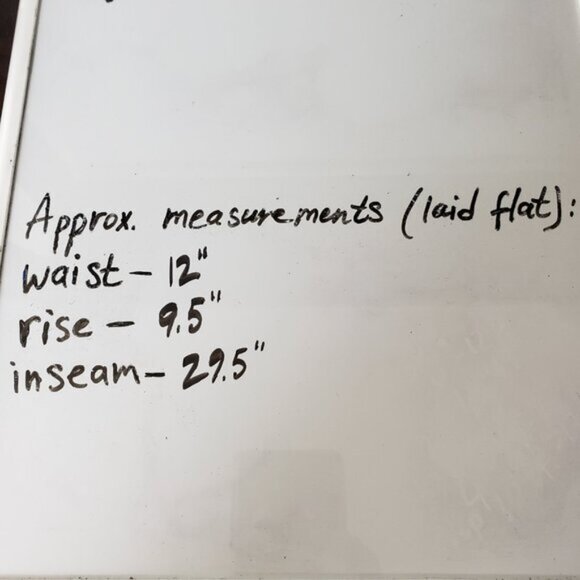 Approx. measurements (laid flat):
waist - 12"
rise - 9.5"
inseam - 29.5"